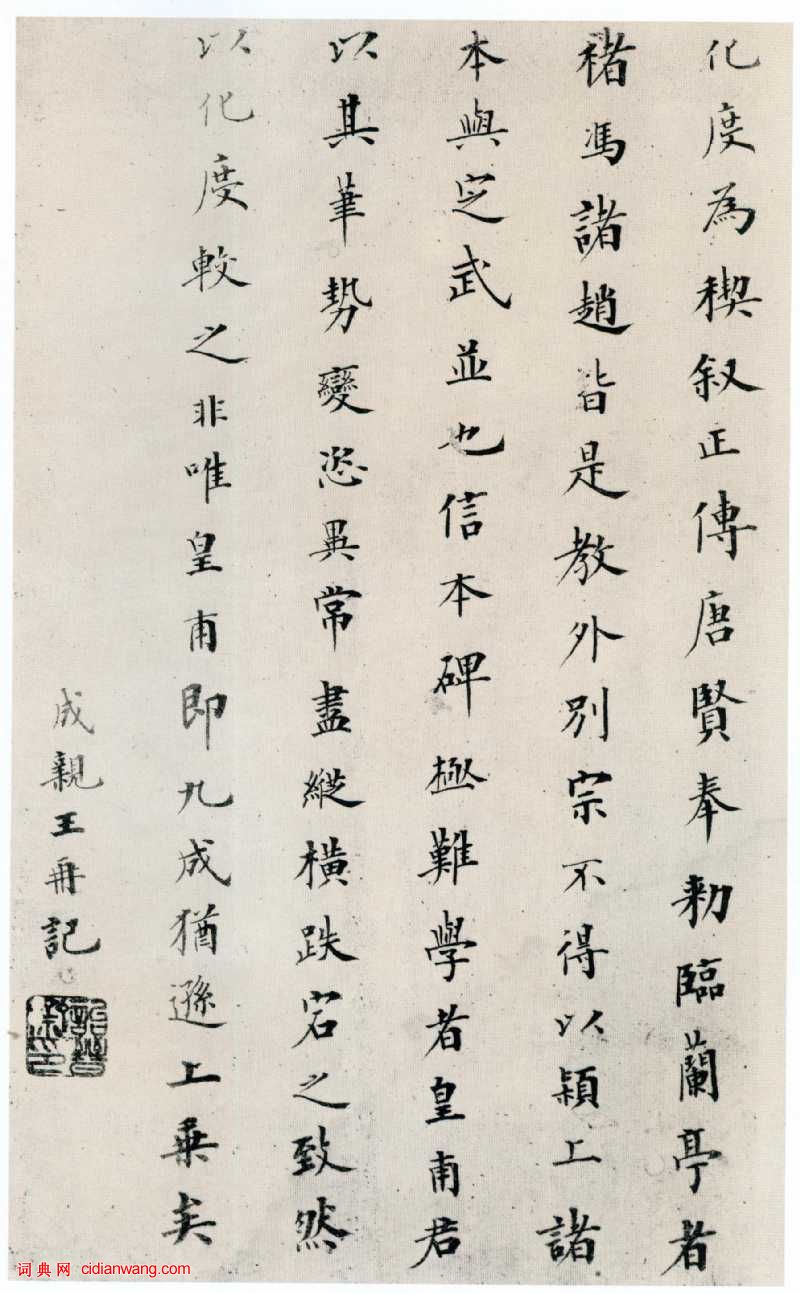 化度為稧叙正傳唐賢奉勑臨蘭亭者
褚馮諸趙皆是教外别宗不得以潁上諸
本與定武並也信本碑極難學者皇甫君
以其筆勢變恣異常盡縱橫跌宕之致然
以化度較之非唯皇甫即九成猶遜上乗矣
成親王再記
詞典网 cidianwang.com